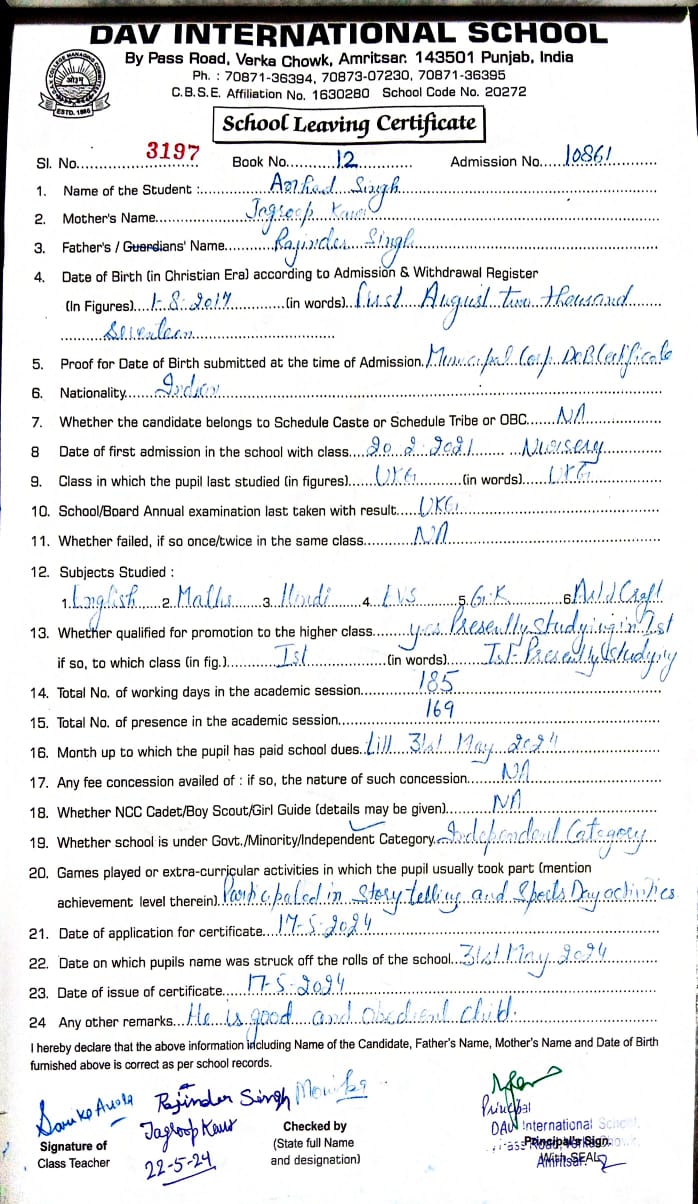 DAV INTERNATIONAL SCHOOL
By Pass Road, Verka Chowk, Amritsar. 143501 Punjab, India
Ph. : 70871-36394, 70873-07230, 70871-36395
C.B.S.E. Affiliation No. 1630280 School Code No. 20272
ESTD. 1886
School Leaving Certificate
Sl. No. 3197 Book No. 12 Admission No. 10861
1. Name of the Student : Singh
2. Mother's Name Jagroop Kaur
3. Father's / Guardians' Name Rajinder Singh
4. Date of Birth (in Christian Era) according to Admission & Withdrawal Register
(In Figures) 1-8-2017 (in words) First August two thousand
Seventeen
5. Proof for Date of Birth submitted at the time of Admission. Municipal Corp. DOB Certificate
6. Nationality Indian
7. Whether the candidate belongs to Schedule Caste or Schedule Tribe or OBC NA
8 Date of first admission in the school with class 20.2.2021 Nursery
9. Class in which the pupil last studied (in figures) UKG (in words) UKG
10. School/Board Annual examination last taken with result UKG
11. Whether failed, if so once/twice in the same class NA
12. Subjects Studied :
1. English 2. Maths 3. Hindi 4. EVS 5. G.K 6. Art & Craft
13. Whether qualified for promotion to the higher class yes Presently Studying in Ist
if so, to which class (in fig.) Ist (in words) Ist Presently Studying
14. Total No. of working days in the academic session 185
15. Total No. of presence in the academic session 169
16. Month up to which the pupil has paid school dues. till 31st May 2024
17. Any fee concession availed of : if so, the nature of such concession NA
18. Whether NCC Cadet/Boy Scout/Girl Guide (details may be given) NA
19. Whether school is under Govt./Minority/Independent Category Independent Category
20. Games played or extra-curricular activities in which the pupil usually took part (mention
achievement level therein) Participated in Story telling and Sports Day activities
21. Date of application for certificate 17-5-2024
22. Date on which pupils name was struck off the rolls of the school 31st May 2024
23. Date of issue of certificate 17-5-2024
24 Any other remarks He is good and obedient child.
I hereby declare that the above information including Name of the Candidate, Father's Name, Mother's Name and Date of Birth
furnished above is correct as per school records.
Rajinder Singh Monika
Jagroop Kaur
22-5-24
Signature of
Class Teacher
Checked by
(State full Name
and designation)
Principal
DAV International School,
Principal's Sign.
With SEAL
Amritsar